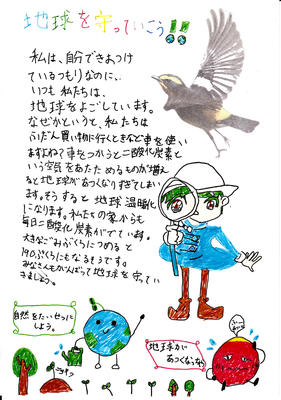 地球を守っていこう!!
私は、自分できをつけ
ているつもりなのに、
いつも私たちは、
地球をよごしています。
なぜかというと、私たちは
ふだん買い物に行くときなど車を使い
ますよね?車をつかうと二酸化炭素と
いう空気をあたためるものが増え
ると地球があつくなり捨てしまい
ます。そうすると地球温暖化
になります。私たちの家からも
毎日二酸化炭素がでています。
大きなごみぶくろにつめると
190ぶくろにもなるそうです。
みなさんもがんばって地球を守ってい
きましょう。
自然をたいせつに
しよう。
地球が
あつくなっちゃう